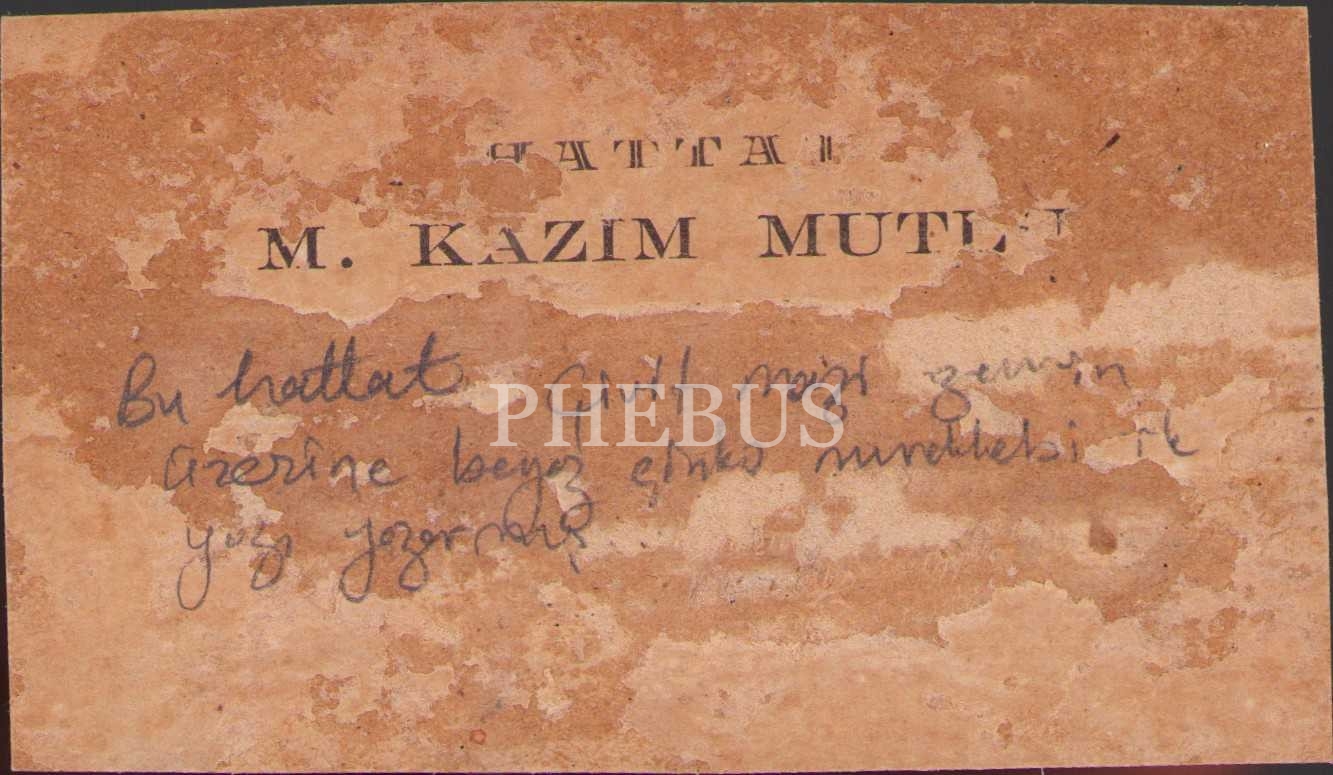 HATTAT
M. KAZIM MUTLU
Bu hattat Civit mavi zemin
üzerine beyaz çinko mürekkebi ile
yazı yazarmış
PHEBUS